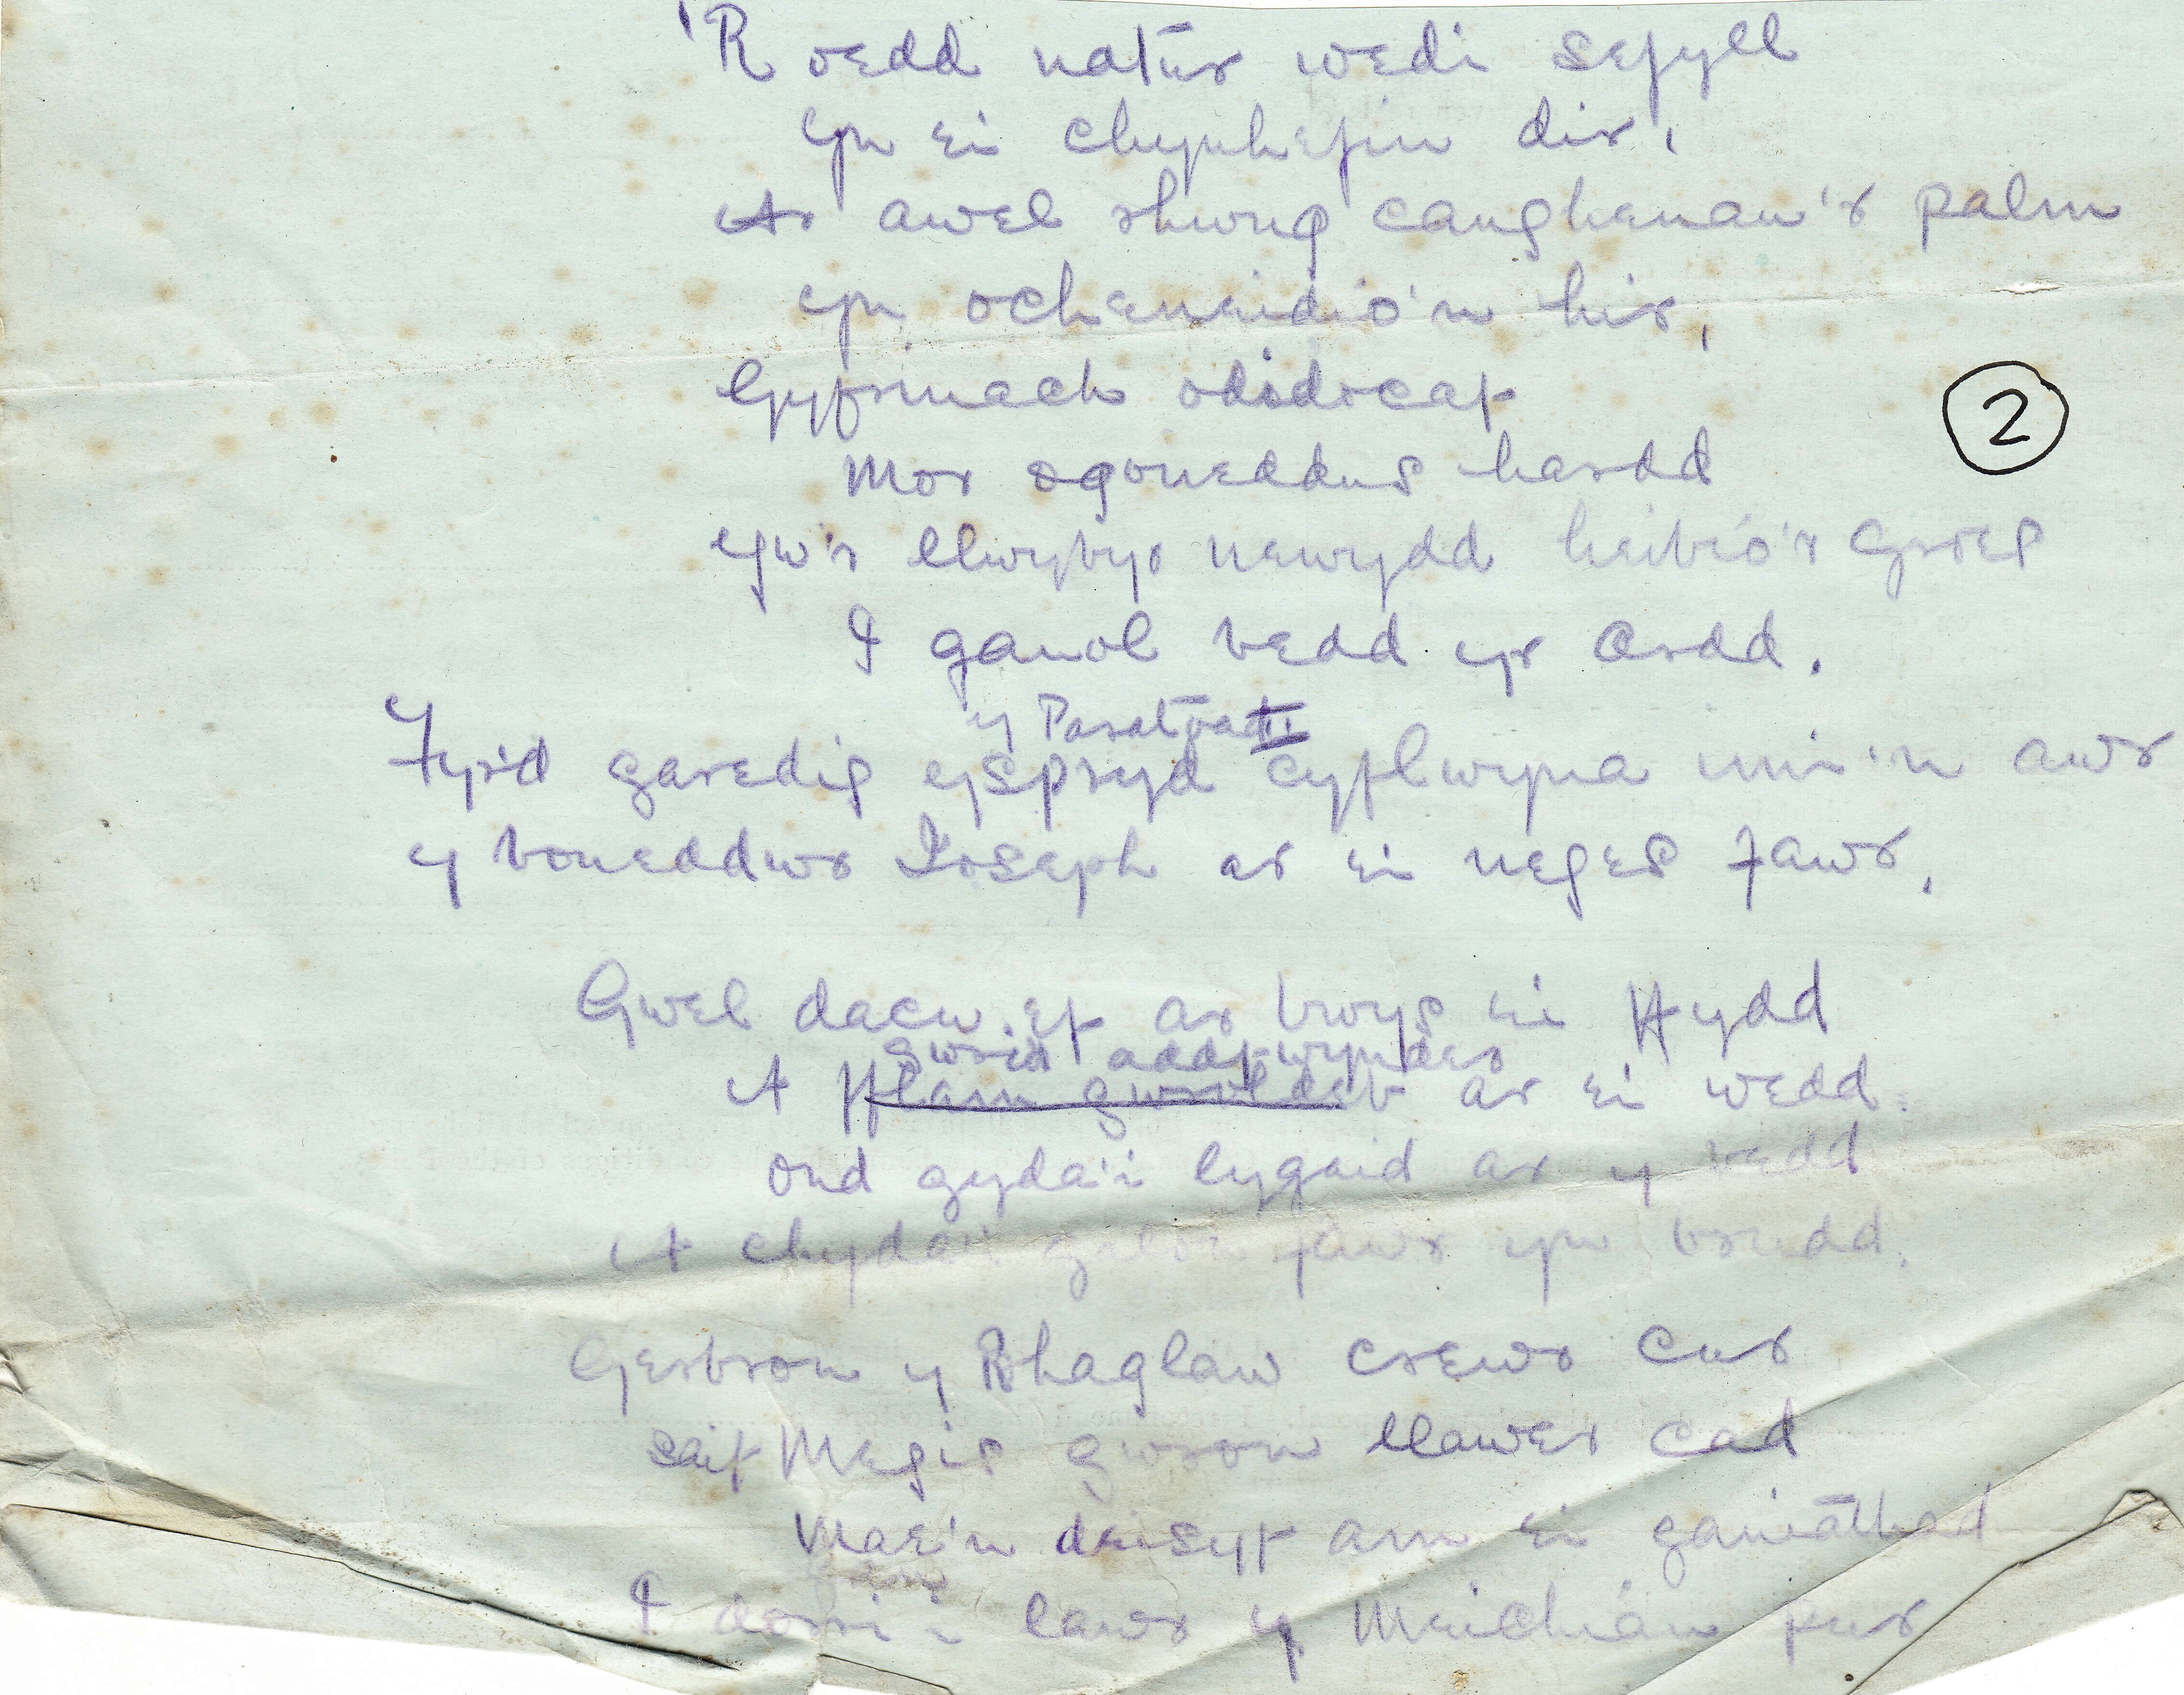 'R oedd natur wedi sefyll
Yn ei chynhefin dir,
Ar awel rhwng canghenau'r palm
Yn ocheneidio'n hir,
Gyfrinach odidocaf
Mor ogoneddus hardd
Yw'r llwybyr newydd heibio'r Groes
I ganol bedd yr Ardd.
2
y Paratoad II
Y Fyr'd garedig yspryd cyflwyna imi'n awr
y boneddwr Joseph ar ei neges fawr,
Gwel dacw ef ar bwys ei ffydd
gwrid addfwynder
A fflam gwroldeb ar ei wedd.
Ond gyda'i lygaid ar y bedd
A chyda'i galon fawr yn brudd.
Gerbron y Rhaglaw crewr cur
saif Megis gwron llawer cad
Mae'n deisyf am ei ganiathad
I dorri i lawr y Meichiau pur